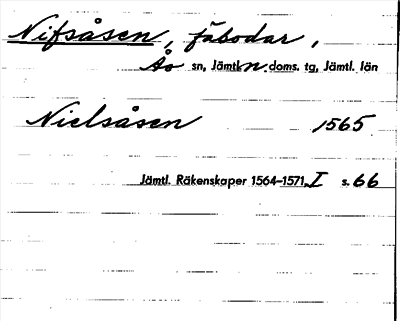 Nifsåsen, fäbodar,
Ås sn, Jämtl. N. doms. tg, Jämtl. län
Nielsåsen 1565
Jämtl. Räkenskaper 1564–1571, I s. 66